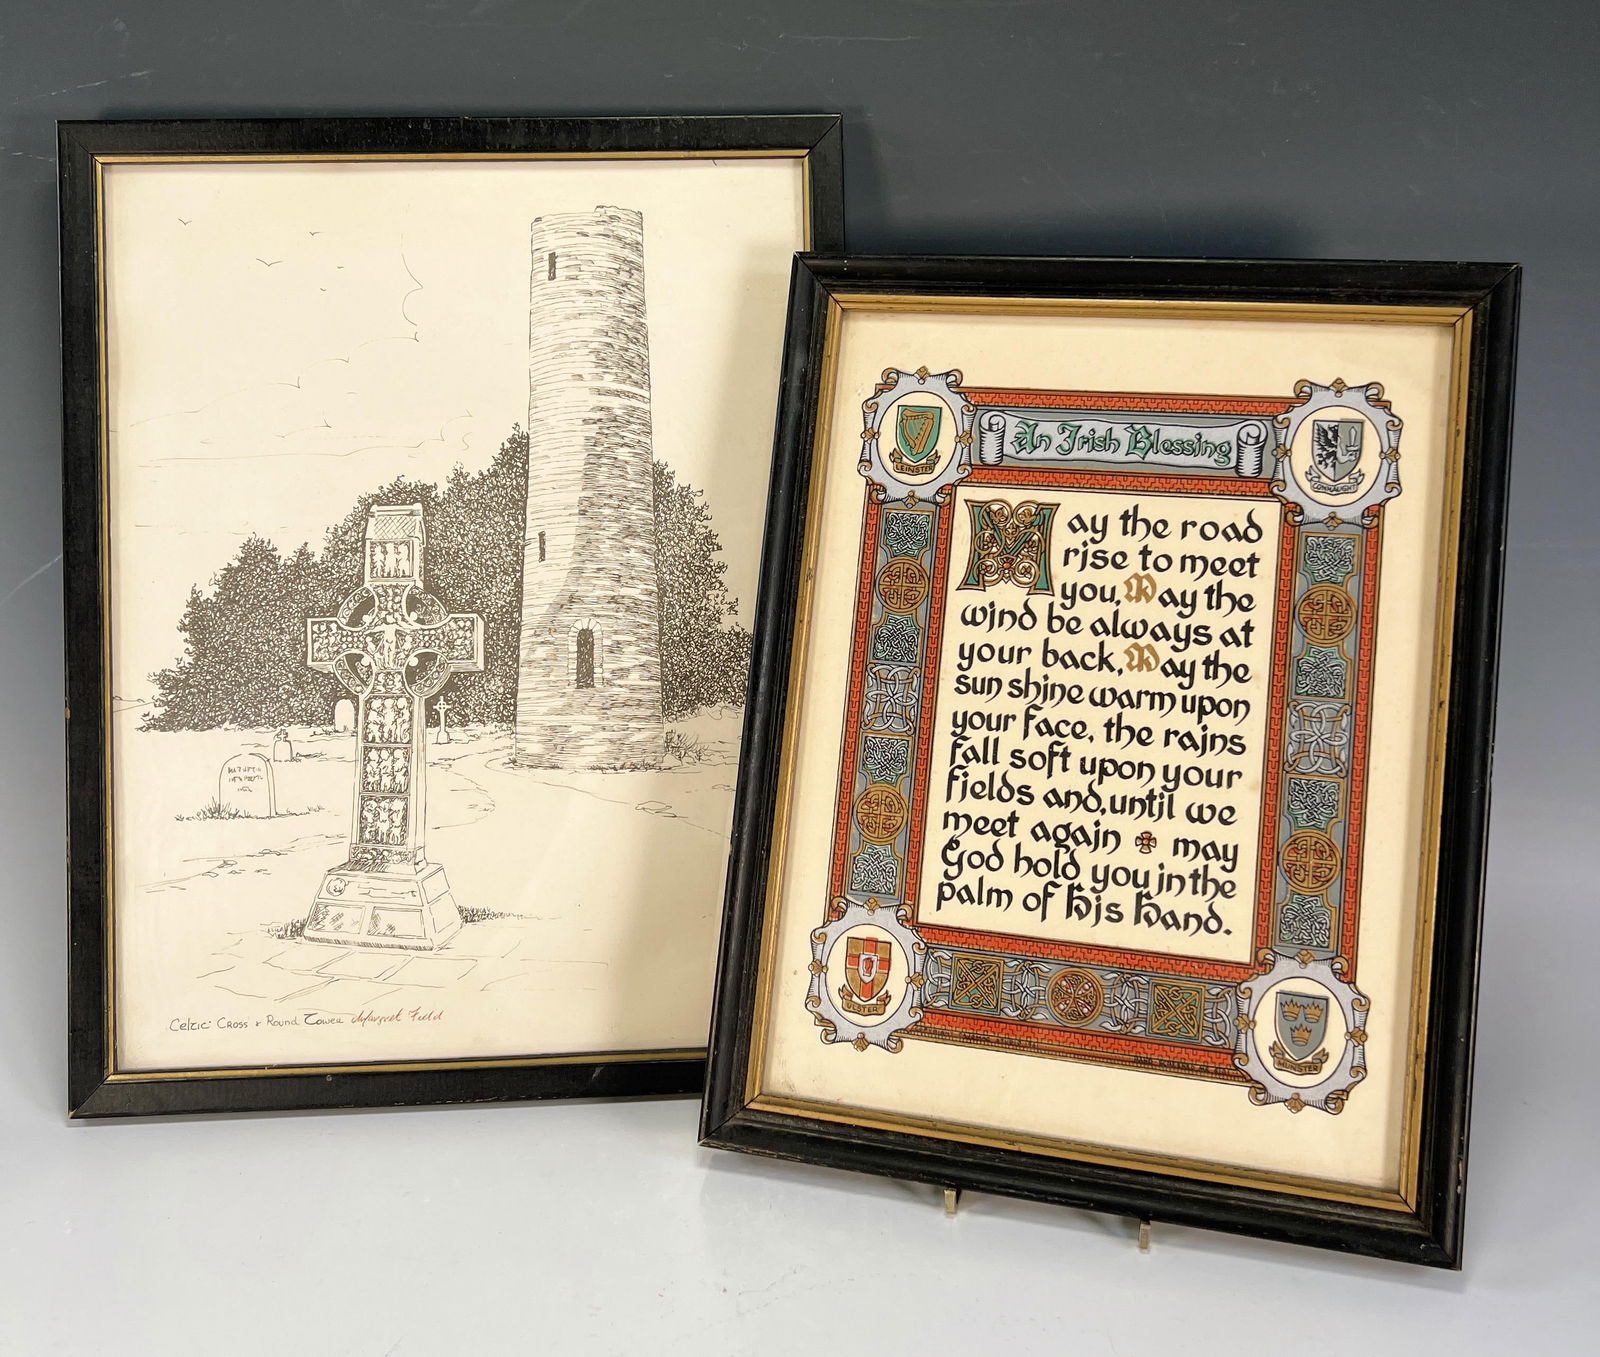 Celtic Cross & Round Tower Margaret Field
An Irish Blessing
LEINSTER
CONNAUGHT
May the road
rise to meet
you, May the
wind be always at
your back, May the
sun shine warm upon
your face, the rains
fall soft upon your
fields and, until we
meet again may
God hold you in the
palm of His Hand.
ULSTER
MUNSTER